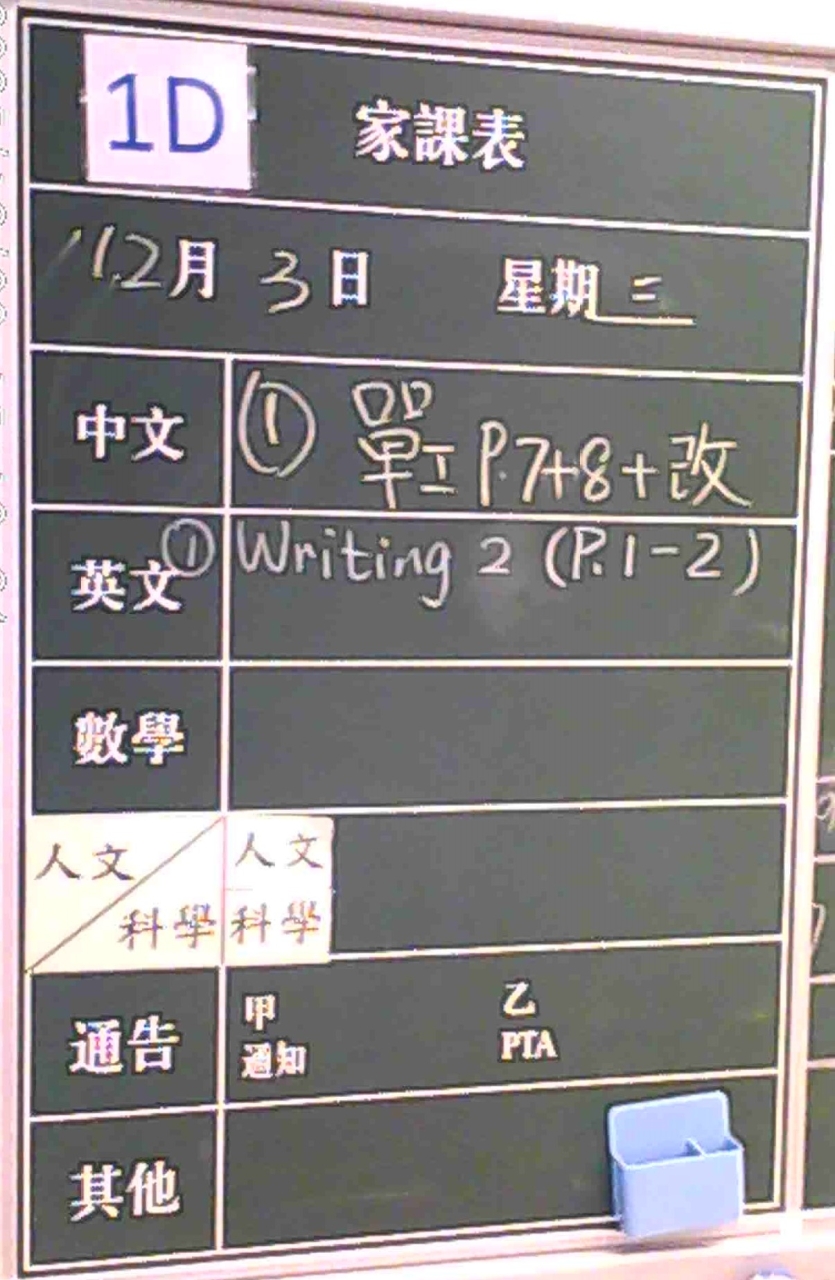 1D 家課表
12月 3日 星期三
中文 ① 單工 P.7+8+改
英文 ① Writing 2 (P.1-2)
數學
人文 人文
科學 科學
通告 甲 乙
通知 PTA
其他